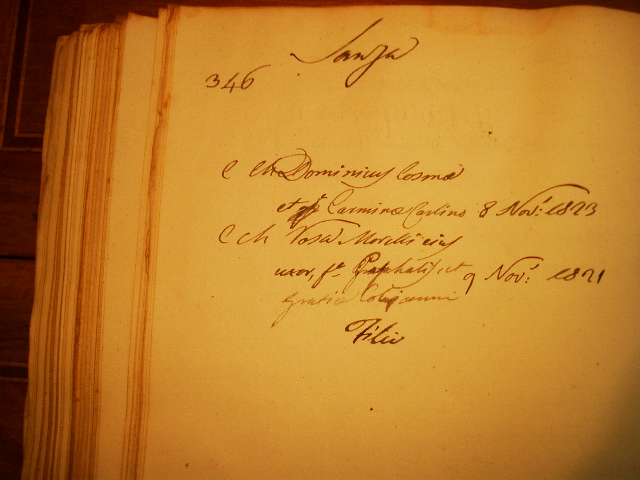 Sanza
346
C Ch Dominicus Cosmæ
et Carminæ Carlino 8 Nov: 1823
C Ch Rosa Morelli eius
uxor, f. Raphaelis, et 9 Nov: 1821
Gratiæ
Filii